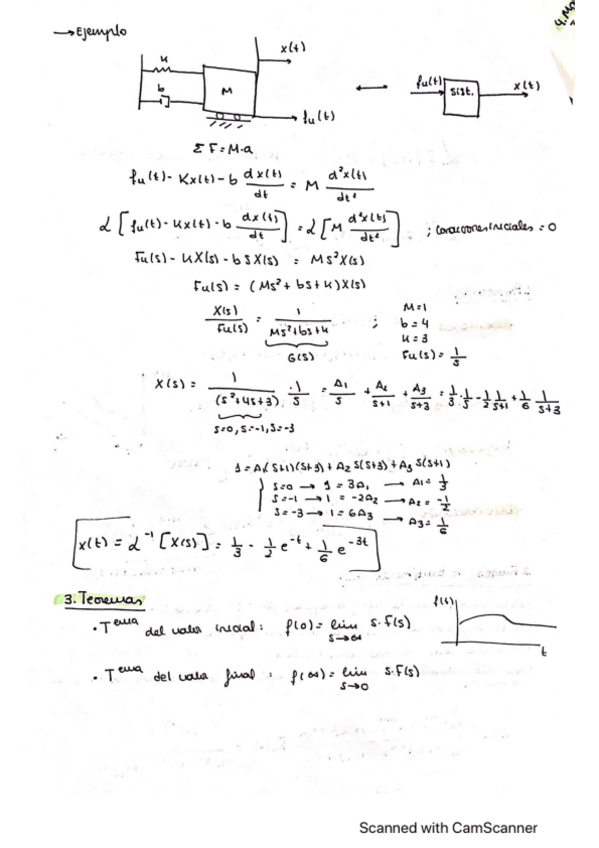 → Ejemplo
4. Mo
x(t)
K
b
M
fu(t)
fu(t)
sist.
x(t)
Σ F = M·a
fu(t) - Kx(t) - b dx(t)/dt = M d²x(t)/dt²
ℒ [fu(t) - Kx(t) - b dx(t)/dt] = ℒ [M d²x(t)/dt²] ; condiciones iniciales = 0
Fu(s) - KX(s) - bSX(s) = MS²X(s)
Fu(s) = (Ms² + bs + K)X(s)
X(s)/Fu(s) = 1/(Ms² + bs + K) ;
G(s)
M=1
b=4
K=3
Fu(s) = 1/s
X(s) = 1/(s²+4s+3) · 1/s = A1/s + A2/(s+1) + A3/(s+3) = 1/3·1/s - 1/2 1/(s+1) + 1/6 1/(s+3)
s=0, s=-1, s=-3
1 = A1(s+1)(s+3) + A2 s(s+3) + A3 s(s+1)
s=0 → 1 = 3A1 → A1 = 1/3
s=-1 → 1 = -2A2 → A2 = -1/2
s=-3 → 1 = 6A3 → A3 = 1/6
x(t) = ℒ⁻¹ [X(s)] = 1/3 - 1/2 e^-t + 1/6 e^-3t
3. Teoremas
· Tema del valor inicial: f(0) = lim s→∞ s·F(s)
f(t)
t
· Tema del valor final: f(∞) = lim s→0 s·F(s)
Scanned with CamScanner